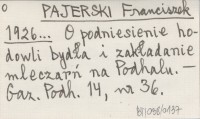 O
PAJERSKI Franciszek
1926... O podniesienie ho-
dowli bydła i zakładanie
mleczarń na Podhalu. —
Gaz. Podh. 14, nr 36.